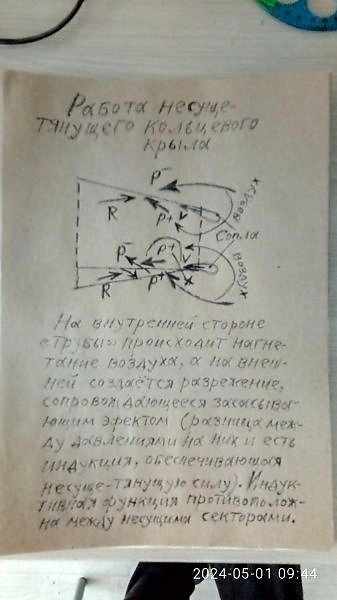 Работа несуще-
тянущего кольцевого
крыла
P⁻
воздух
R
P+
V
Сопла
P⁻
P+
V
воздух
R
P+
X
На внутренней стороне
«трубы» происходит нагне-
тание воздуха, а на внеш-
ней создаётся разрежение,
сопровождающееся засасыва-
ющим эфектом (разница меж-
ду давлениями на них и есть
индукция, обеспечивающая
несуще-тянущую силу). Индук-
тивная функция противополож-
на между несущими секторами.
2024-05-01 09:44